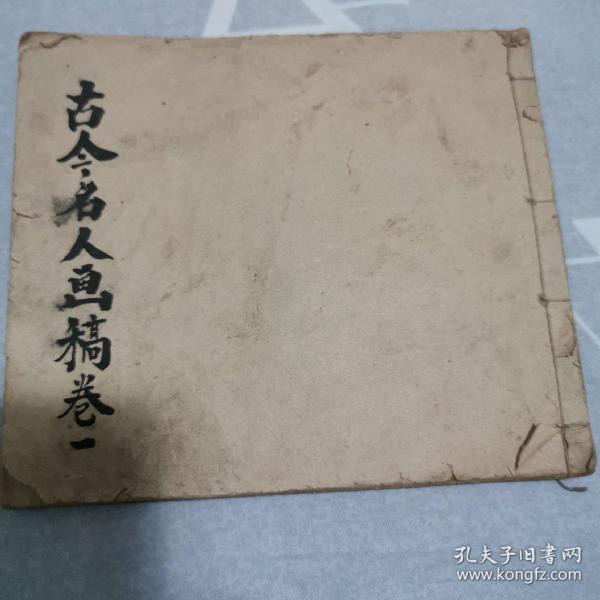 古今名人画稿卷一
孔夫子旧书网
www.kongfz.com